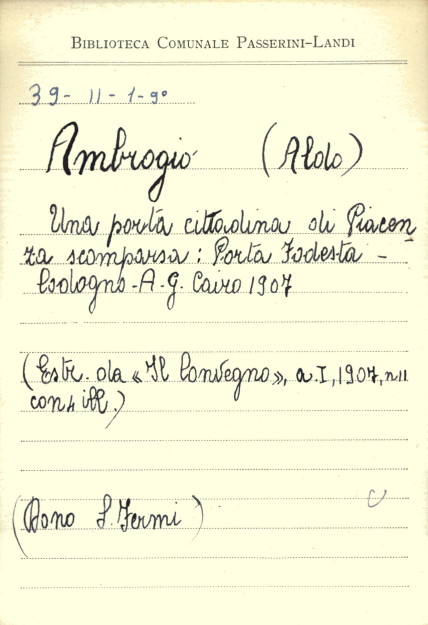 BIBLIOTECA COMUNALE PASSERINI-LANDI
39- II - 1-9º
Ambrogio (Aldo)
Una porta cittadina di Piacen
za scomparsa: Porta Fodesta -
Codogno - A. G. Cairo 1907
(Estr. da « Il Convegno», a. I, 1907, n 11
con 4 ill.)
(Dono S. Fermi)